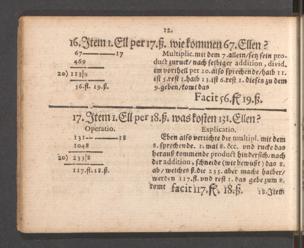 12.
16. Item 1. Ell per 17. ß. wie kommen 67. Ellen?
67 — 17
469
20) 113|9
56. fl. 19. ß.
Multiplic. mit dem 7. allein/ setz sein product zuruck/ nach selbiger addition, divid.
im vortheil per 20. also sprechende/ halb 11.
ist 5. rest 1. halb 13. ist 6. rest 1. diesen zu dem
9. geben/ komt das
Facit 56. fl. 19. ß.
17. Item 1. Ell per 18. ß. was kosten 131. Ellen?
Operatio.
131 — 18
1048
20) 235|8
117. fl. 18. ß.
Explicatio.
Eben also verrichte die multipl. mit dem
8. sprechende. 1. mal 8. &c. und rucke das
herauß kommende product hindersich/ nach
der addition, schneide (wie bewußt) das 8.
ab/ welches ß. die 235. aber mache halber/
werden 117. fl. und rest 1. das gebe zum 8.
komt facit 117. fl. 18. ß.
18. Item